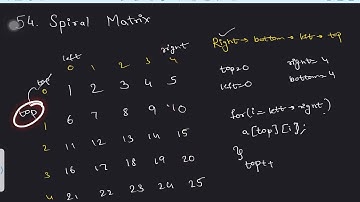 54. Spiral Matrix
left right
0 1 2 3 4
top
0 1 2 3 4 5
top
1 6 7 8 9 10
2 11 12 13 14 15
3 16 17 18 19 20
4 21 22 23 24 25
Right → bottom → left → top
top=0 right=4
left=0 bottom=4
for(i=left → right)
a[top][i];
}
top++